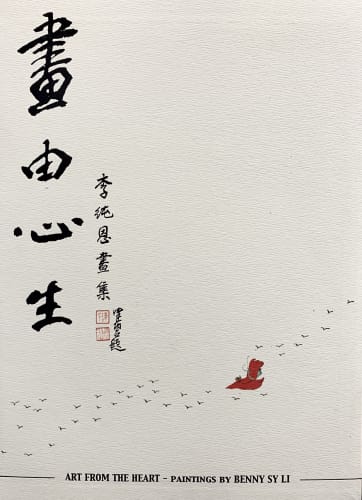 畫由心生
李純恩畫集
ART FROM THE HEART - PAINTINGS BY BENNY SY LI